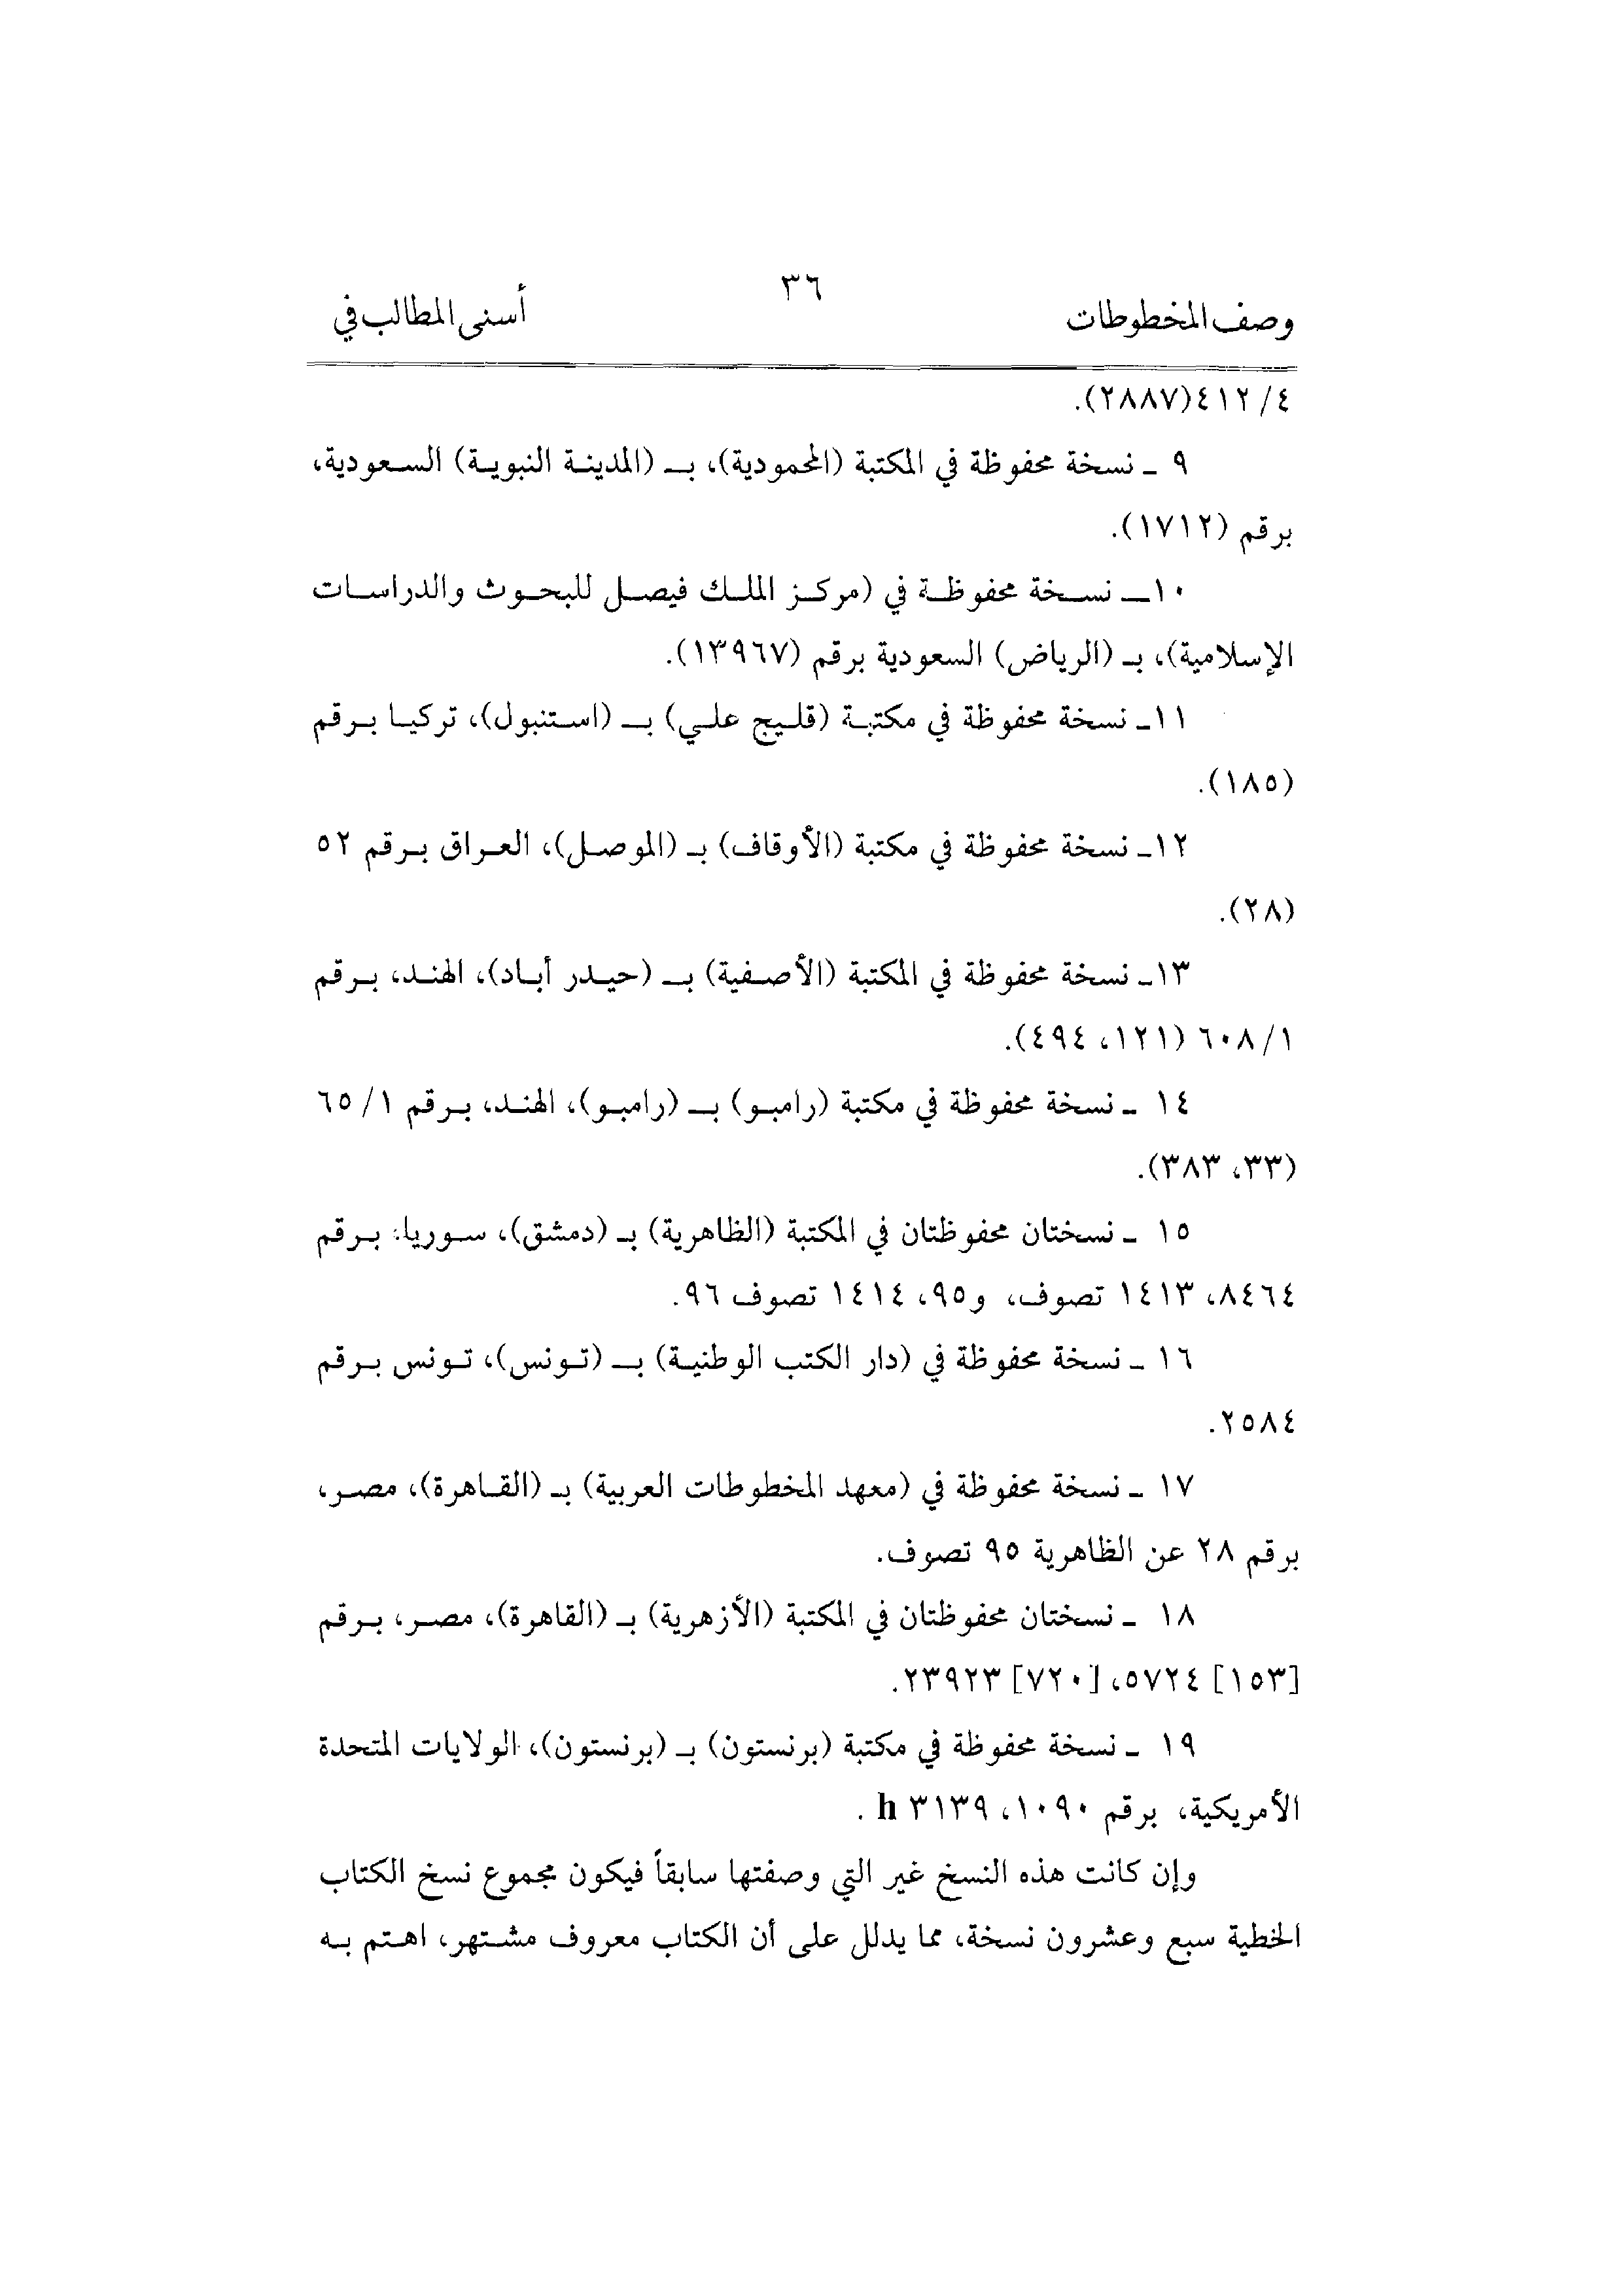 وصف المخطوطات
٣٦
أسنى المطالب في
٤/ ٤١٢(٢٨٨٧).
٩ ـ نسخة محفوظة في المكتبة (المحمودية)، بـ (المدينة النبوية) السعودية،
برقم (١٧١٢).
١٠ـ نسخة محفوظة في (مركز الملك فيصل للبحوث والدراسات
الإسلامية)، بـ (الرياض) السعودية برقم (١٣٩٦٧).
١١ـ نسخة محفوظة في مكتبة (قليج علي) بـ (استنبول)، تركيا برقم
(١٨٥).
١٢ـ نسخة محفوظة في مكتبة (الأوقاف) بـ (الموصل)، العراق برقم ٥٢
(٢٨).
١٣ـ نسخة محفوظة في المكتبة (الأصفية) بـ (حيدر أباد)، الهند، برقم
١/ ٦٠٨ (١٢١، ٤٩٤).
١٤ ـ نسخة محفوظة في مكتبة (رامبو) بـ (رامبو)، الهند، برقم ١/ ٦٥
(٣٣، ٣٨٣).
١٥ ـ نسختان محفوظتان في المكتبة (الظاهرية) بـ (دمشق)، سوريا، برقم
٨٤٦٤، ١٤١٣ تصوف، و٩٥، ١٤١٤ تصوف ٩٦.
١٦ ـ نسخة محفوظة في (دار الكتب الوطنية) بـ (تونس)، تونس برقم
٢٥٨٤.
١٧ ـ نسخة محفوظة في (معهد المخطوطات العربية) بـ (القاهرة)، مصر،
برقم ٢٨ عن الظاهرية ٩٥ تصوف.
١٨ ـ نسختان محفوظتان في المكتبة (الأزهرية) بـ (القاهرة)، مصر، برقم
[١٥٣] ٥٧٢٤، [٧٢٠] ٢٣٩٢٣.
١٩ ـ نسخة محفوظة في مكتبة (برنستون) بـ (برنستون)، الولايات المتحدة
الأمريكية، برقم ١٠٩٠، ٣١٣٩ h .
وإن كانت هذه النسخ غير التي وصفتها سابقاً فيكون مجموع نسخ الكتاب
الخطية سبع وعشرون نسخة، مما يدلل على أن الكتاب معروف مشتهر، اهتم به